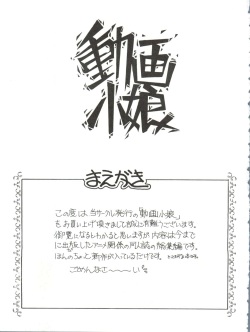 動画
小娘
まえがき
この度は、当サークル発行の「動画小娘」
をお買い上げ頂きまして誠に有難うございます。
御覧になるとわかると思いますが内容は今まで
に出版したアニメ関係の同人誌の総集編です。
ほんのちょっと新作が入ってるだけです。
ごめんなさ〜〜〜い